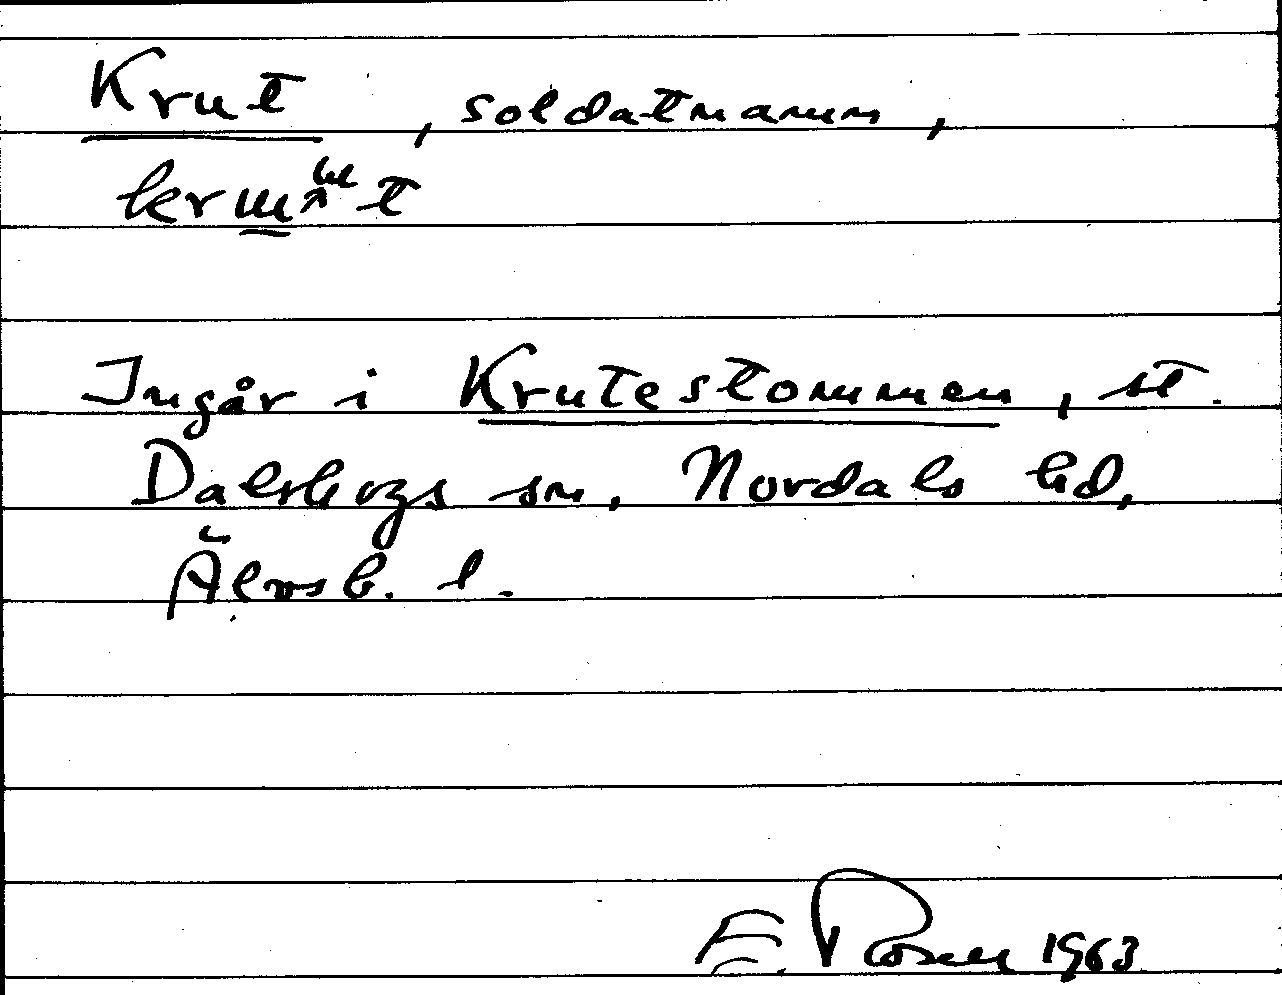 Krut, soldatnamn,
Ingår i Krutestommen, st.
Dalskogs sn, Nordals hd,
Älvsb. l.
E. Rosell 1963